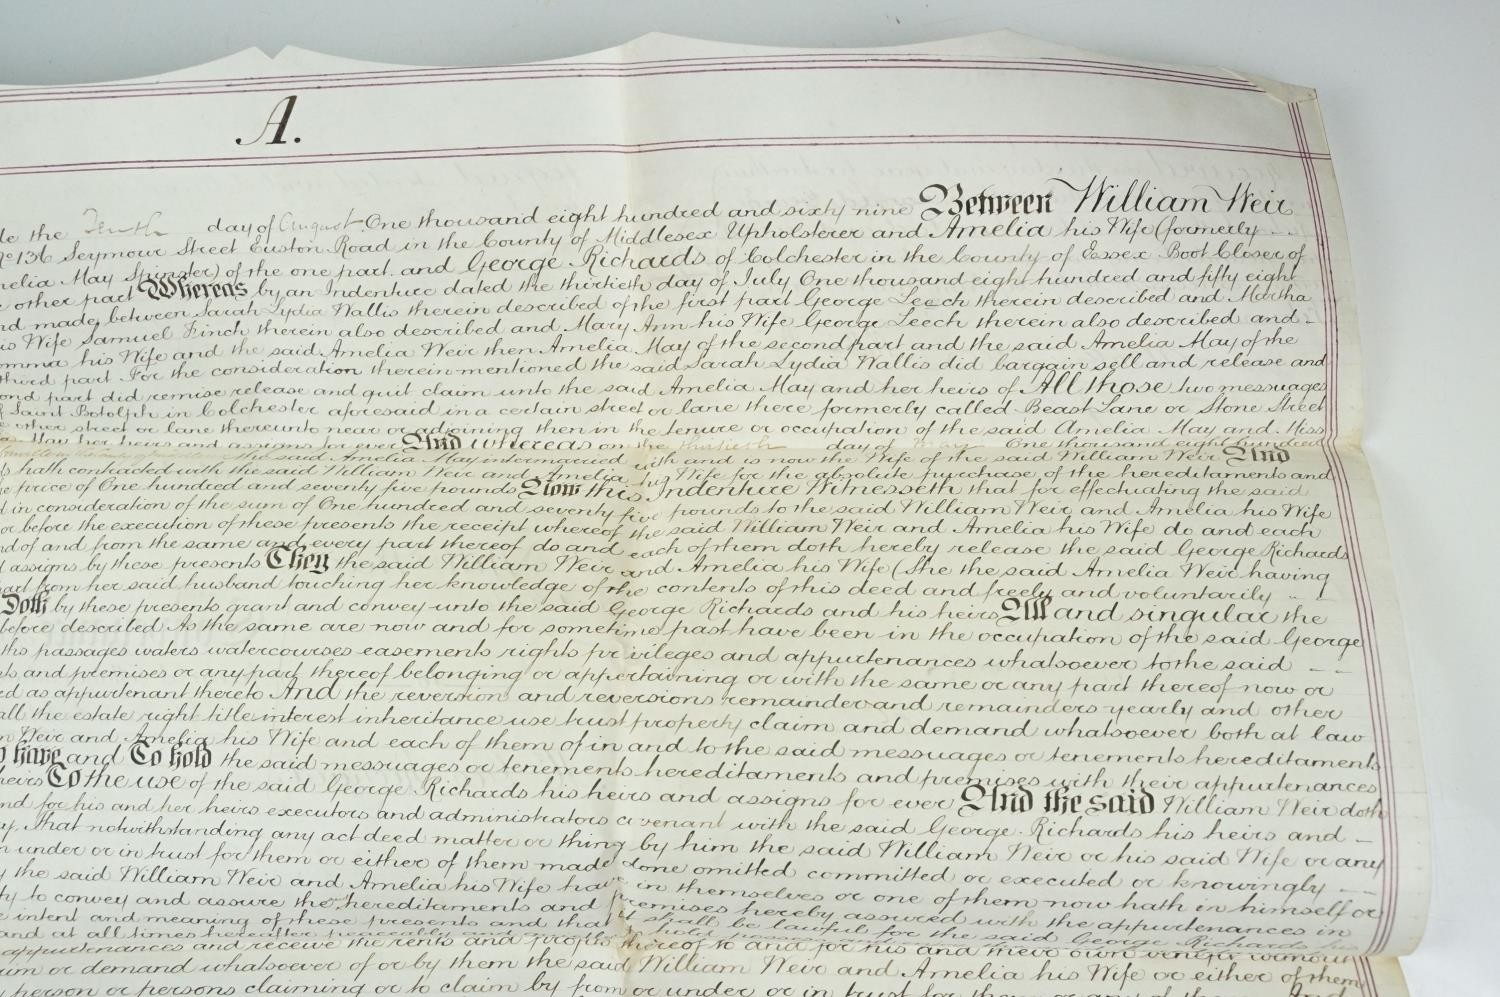 A.
the Tenth day of August One thousand eight hundred and sixty nine Between William Weir
No 136 Seymour Street Euston Road in the County of Middlesex Upholsterer and Amelia his Wife (formerly
Amelia May Spinster) of the one part and George Richards of Colchester in the County of Essex Boot Closer of
other part Whereas by an Indenture dated the thirtieth day of July One thousand eight hundred and fifty eight
and made between Sarah Lydia Wallis therein described of the first part George Leech therein described and Martha
his Wife Samuel Finch therein also described and Mary Ann his Wife George Leech therein also described and
his Wife and the said Amelia Weir then Amelia May of the second part and the said Amelia May of the
third part For the consideration therein mentioned the said Sarah Lydia Wallis did bargain sell and release and
part did remise release and quit claim unto the said Amelia May and her heirs of All those two messuages
Saint Botolph in Colchester aforesaid in a certain street or lane there formerly called Beast Lane or Stone Street
other street or lane thereunto near or adjoining then in the tenure or occupation of the said Amelia May and Miss
May her heirs and assigns for ever And whereas on the thirtieth day of May One thousand eight hundred
the said Amelia May intermarried with and is now the Wife of the said William Weir And
hath contracted with the said William Weir and Amelia his Wife for the absolute purchase of the hereditaments and
price of One hundred and seventy five pounds Now this Indenture Witnesseth that for effectuating the said
in consideration of the sum of One hundred and seventy five pounds to the said William Weir and Amelia his Wife
or before the execution of these presents the receipt whereof the said William Weir and Amelia his Wife do and each
of and from the same and every part thereof do and each of them doth hereby release the said George Richards
assigns by these presents They the said William Weir and Amelia his Wife (She the said Amelia Weir having
apart from her said husband touching her knowledge of the contents of this deed and freely and voluntarily
Doth by these presents grant and convey unto the said George Richards and his heirs All and singular the
before described As the same are now and for sometime past have been in the occupation of the said George
passages waters watercourses easements rights privileges and appurtenances whatsoever to the said
and premises or any part thereof belonging or appertaining or with the same or any part thereof now or
as appurtenant thereto And the reversion and reversions remainder and remainders yearly and other
all the estate right title interest inheritance use trust property claim and demand whatsoever both at law
Weir and Amelia his Wife and each of them of in and to the said messuages or tenements hereditaments
To have and To hold the said messuages or tenements hereditaments and premises with their appurtenances
heirs To the use of the said George Richards his heirs and assigns for ever And the said William Weir doth
for his and her heirs executors and administrators covenant with the said George Richards his heirs and
That notwithstanding any act deed matter or thing by him the said William Weir or his said Wife or any
under or in trust for them or either of them made done omitted committed or executed or knowingly
the said William Weir and Amelia his Wife have in themselves or one of them now hath in himself or
to convey and assure the hereditaments and premises hereby assured with the appurtenances in
intent and meaning of these presents and that it shall be lawful for the said George Richards his
and at all times hereafter peaceably and
appurtenances and receive the rents and profits thereof to and for his and their own benefit without
or demand whatsoever of or by them the said William Weir and Amelia his Wife or either of them
person or persons claiming or to claim by from or under or in trust for them or any of And